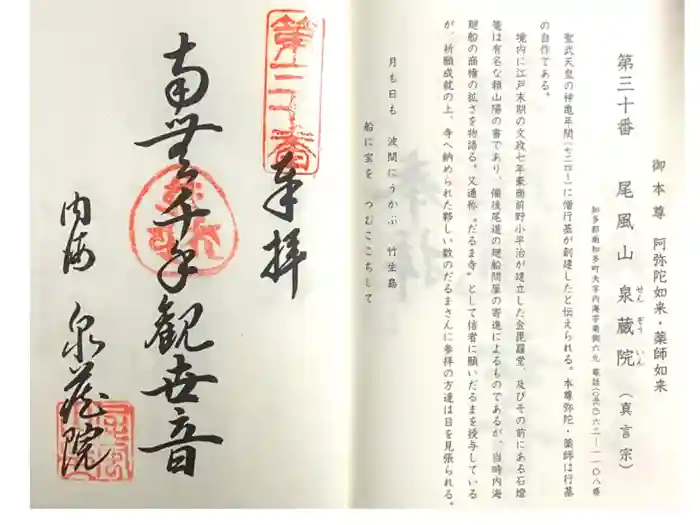 御本尊 阿弥陀如来・薬師如来
第三十番 尾風山 泉蔵院(真言宗)
せん ぞう いん
知多郡南知多町大字内海字南側六九 電話(〇五六九)六二ー一一〇八番
聖武天皇の神亀年間(七二四〜)に僧行基が創建したと伝えられる。本尊弥陀・薬師は行基
の自作である。
境内に江戸末期の文政七年豪商前野小平治が建立した金毘羅堂、及びその前にある石燈
篭は有名な頼山陽の書であり、備後尾道の廻船問屋の寄進によるものであるが、当時内海
廻船の商権の拡さを物語る。又通称〝だるま寺〟として信者に願いだるまを授与している
が、祈願成就の上、寺へ納められた夥しい数のだるまさんに参拝の方達は目を見張られる。
月も日も 波間にうかぶ 竹生島
船に宝を つむここちして
奉拝
南無千手観世音
内海 泉蔵院